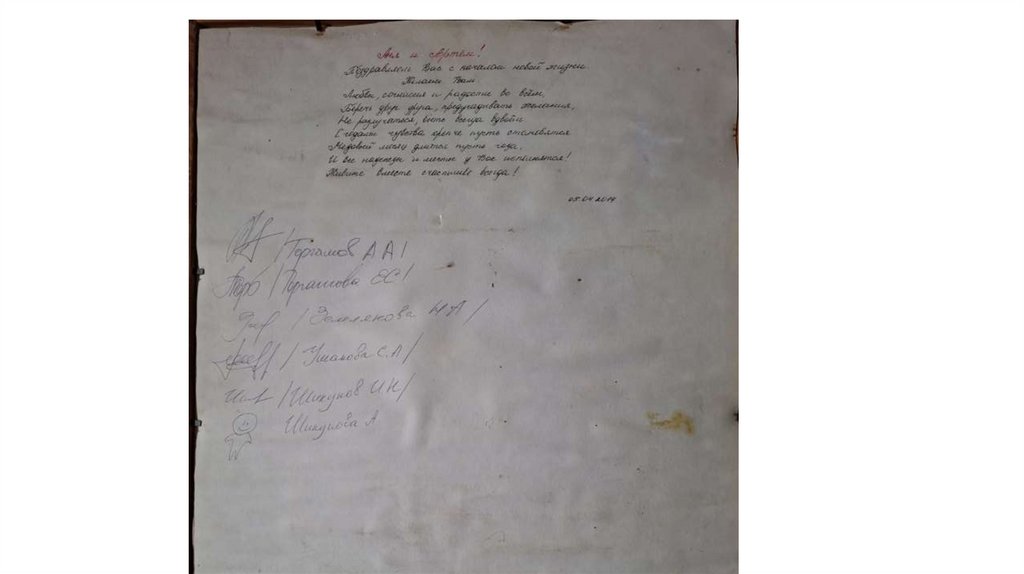 Аня и Артем!
Поздравляем Вас с началом новой жизни
Желаем Вам
Любви, согласия и радости во всём,
Беречь друг друга, предугадывать желания,
Не разлучаться, быть всегда вдвоём
С годами чувства крепче пусть становятся
Медовый месяц длится пусть года,
И все надежды и мечты у Вас исполнятся!
Живите вместе счастливо всегда!
05.04.2014
А А /
ЕС /
/ Землякова Н А /
/ Ушакова С.А /
/ Шикунов И Н /
Шикунова А